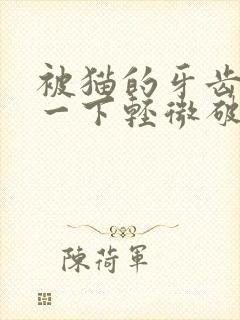 被猫的牙齿
一下轻微破
陳荷軍